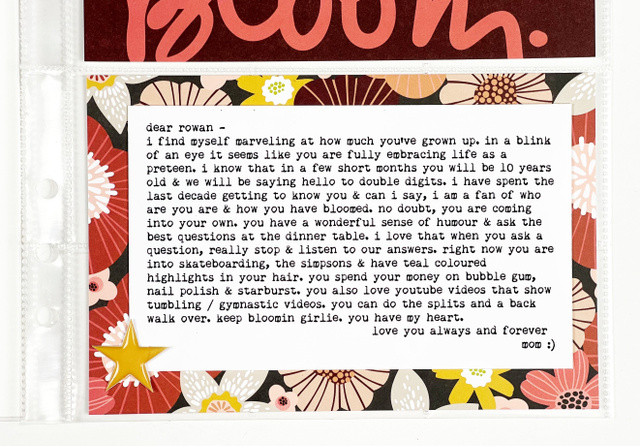 Bloom.
dear rowan -
i find myself marveling at how much you've grown up. in a blink
of an eye it seems like you are fully embracing life as a
preteen. i know that in a few short months you will be 10 years
old & we will be saying hello to double digits. i have spent the
last decade getting to know you & can i say, i am a fan of who
are you are & how you have bloomed. no doubt, you are coming
into your own. you have a wonderful sense of humour & ask the
best questions at the dinner table. i love that when you ask a
question, really stop & listen to our answers. right now you are
into skateboarding, the simpsons & have teal coloured
highlights in your hair. you spend your money on bubble gum,
nail polish & starburst. you also love youtube videos that show
tumbling / gymnastic videos. you can do the splits and a back
walk over. keep bloomin girlie. you have my heart.
love you always and forever
mom :)